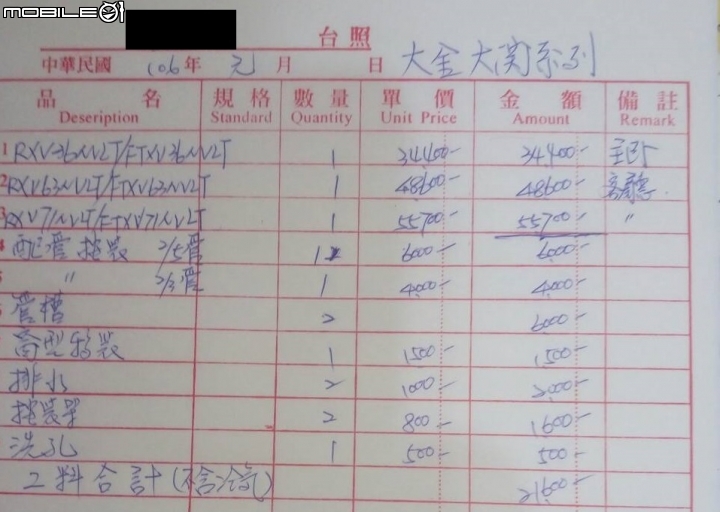 MOBILE01
台照
中華民國 106 年 元 月 日 大金大関系列
品名 規格 數量 單價 金額 備註
Deseription Standard Quantity Unit Price Amount Remark
1 RXV36NVLT/FTXV36NVLT 1 34400- 34400- 主臥
2 RXV63NVLT/FTXV63NVLT 1 48600- 48600- 客廳
3 RXV71NVLT/FTXV71NVLT 1 55700- 55700- "
4 配管按裝 2/5管 1 6000- 6000-
" 2/3管 1 4000- 4000-
管槽 2 6000-
1 1500- 1500-
排水 2 1000- 2000-
按裝架 2 800- 1600-
洗孔 1 500- 500-
工料合計(不含冷氣) 21600-